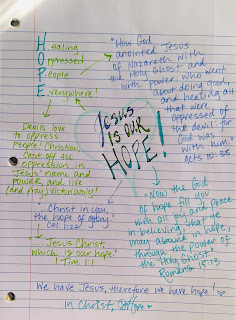 Healing
Oppressed
People
Everywhere!
"How God
anointed Jesus
of Nazareth with
the Holy Ghost and
with power: who went
about doing good,
and healing all
that were
oppressed of
the devil; for
God was
with him."
Acts 10:38
Jesus
is our
Hope!
Devils love
to oppress
people! Christian,
cast off all
oppression in
Jesus' name and
power, and live
(and pray) victoriously!
"Christ in you,
the hope of glory."
Col. 1:27
"...Jesus Christ,
which is our hope."
1 Tim. 1:1
"Now the God
of hope fill you
with all joy and peace
in believing, that ye
may abound in hope,
through the power of
the Holy Ghost."
Romans 15:13
We have Jesus, therefore we have hope!
In Christ,